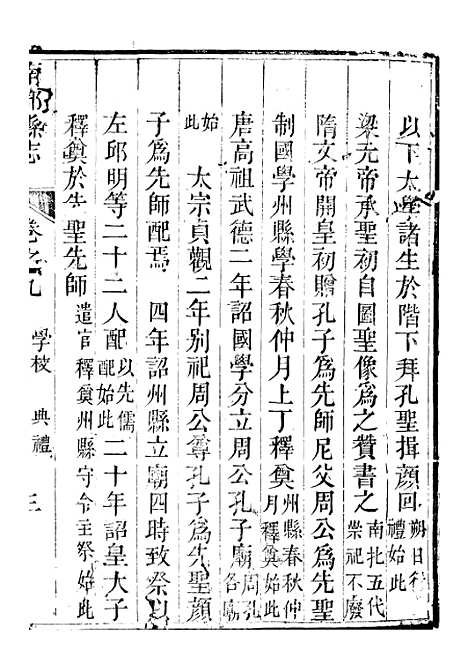 以下太學諸生於階下拜孔聖揖顏回朔日行禮始此
梁元帝承聖初自圖聖像為之贊書之南北五代崇祀不廢
隋文帝開皇初贈孔子為先師尼父周公為先聖
制國學州縣學春秋仲月上丁釋奠州縣春秋仲月釋奠始此
唐高祖武德二年詔國學分立周公孔子廟周孔各廟
始此　太宗貞觀二年別祀周公尊孔子為先聖顏
子為先師配焉　四年詔州縣立廟四時致祭以
左邱明等二十二人配以先儒配始此二十年詔皇大子
釋奠於先聖先師遣官釋奠州縣守令主祭始此
南部縣志　卷之九　學校　典禮　三